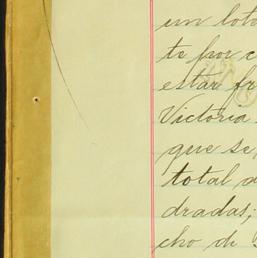 un loto
te por c
estar fr
Victoria
que se
total a
dradas;
cho de